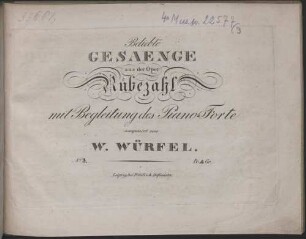 4 Mus. pr. 22577/3
Beliebte
GESAENGE
aus der Oper
Rübezahl
mit Begleitung des Piano-Forte
componirt von
W. WÜRFEL.
Nº 3. Pr. 4 Gr.
Leipzig, bei